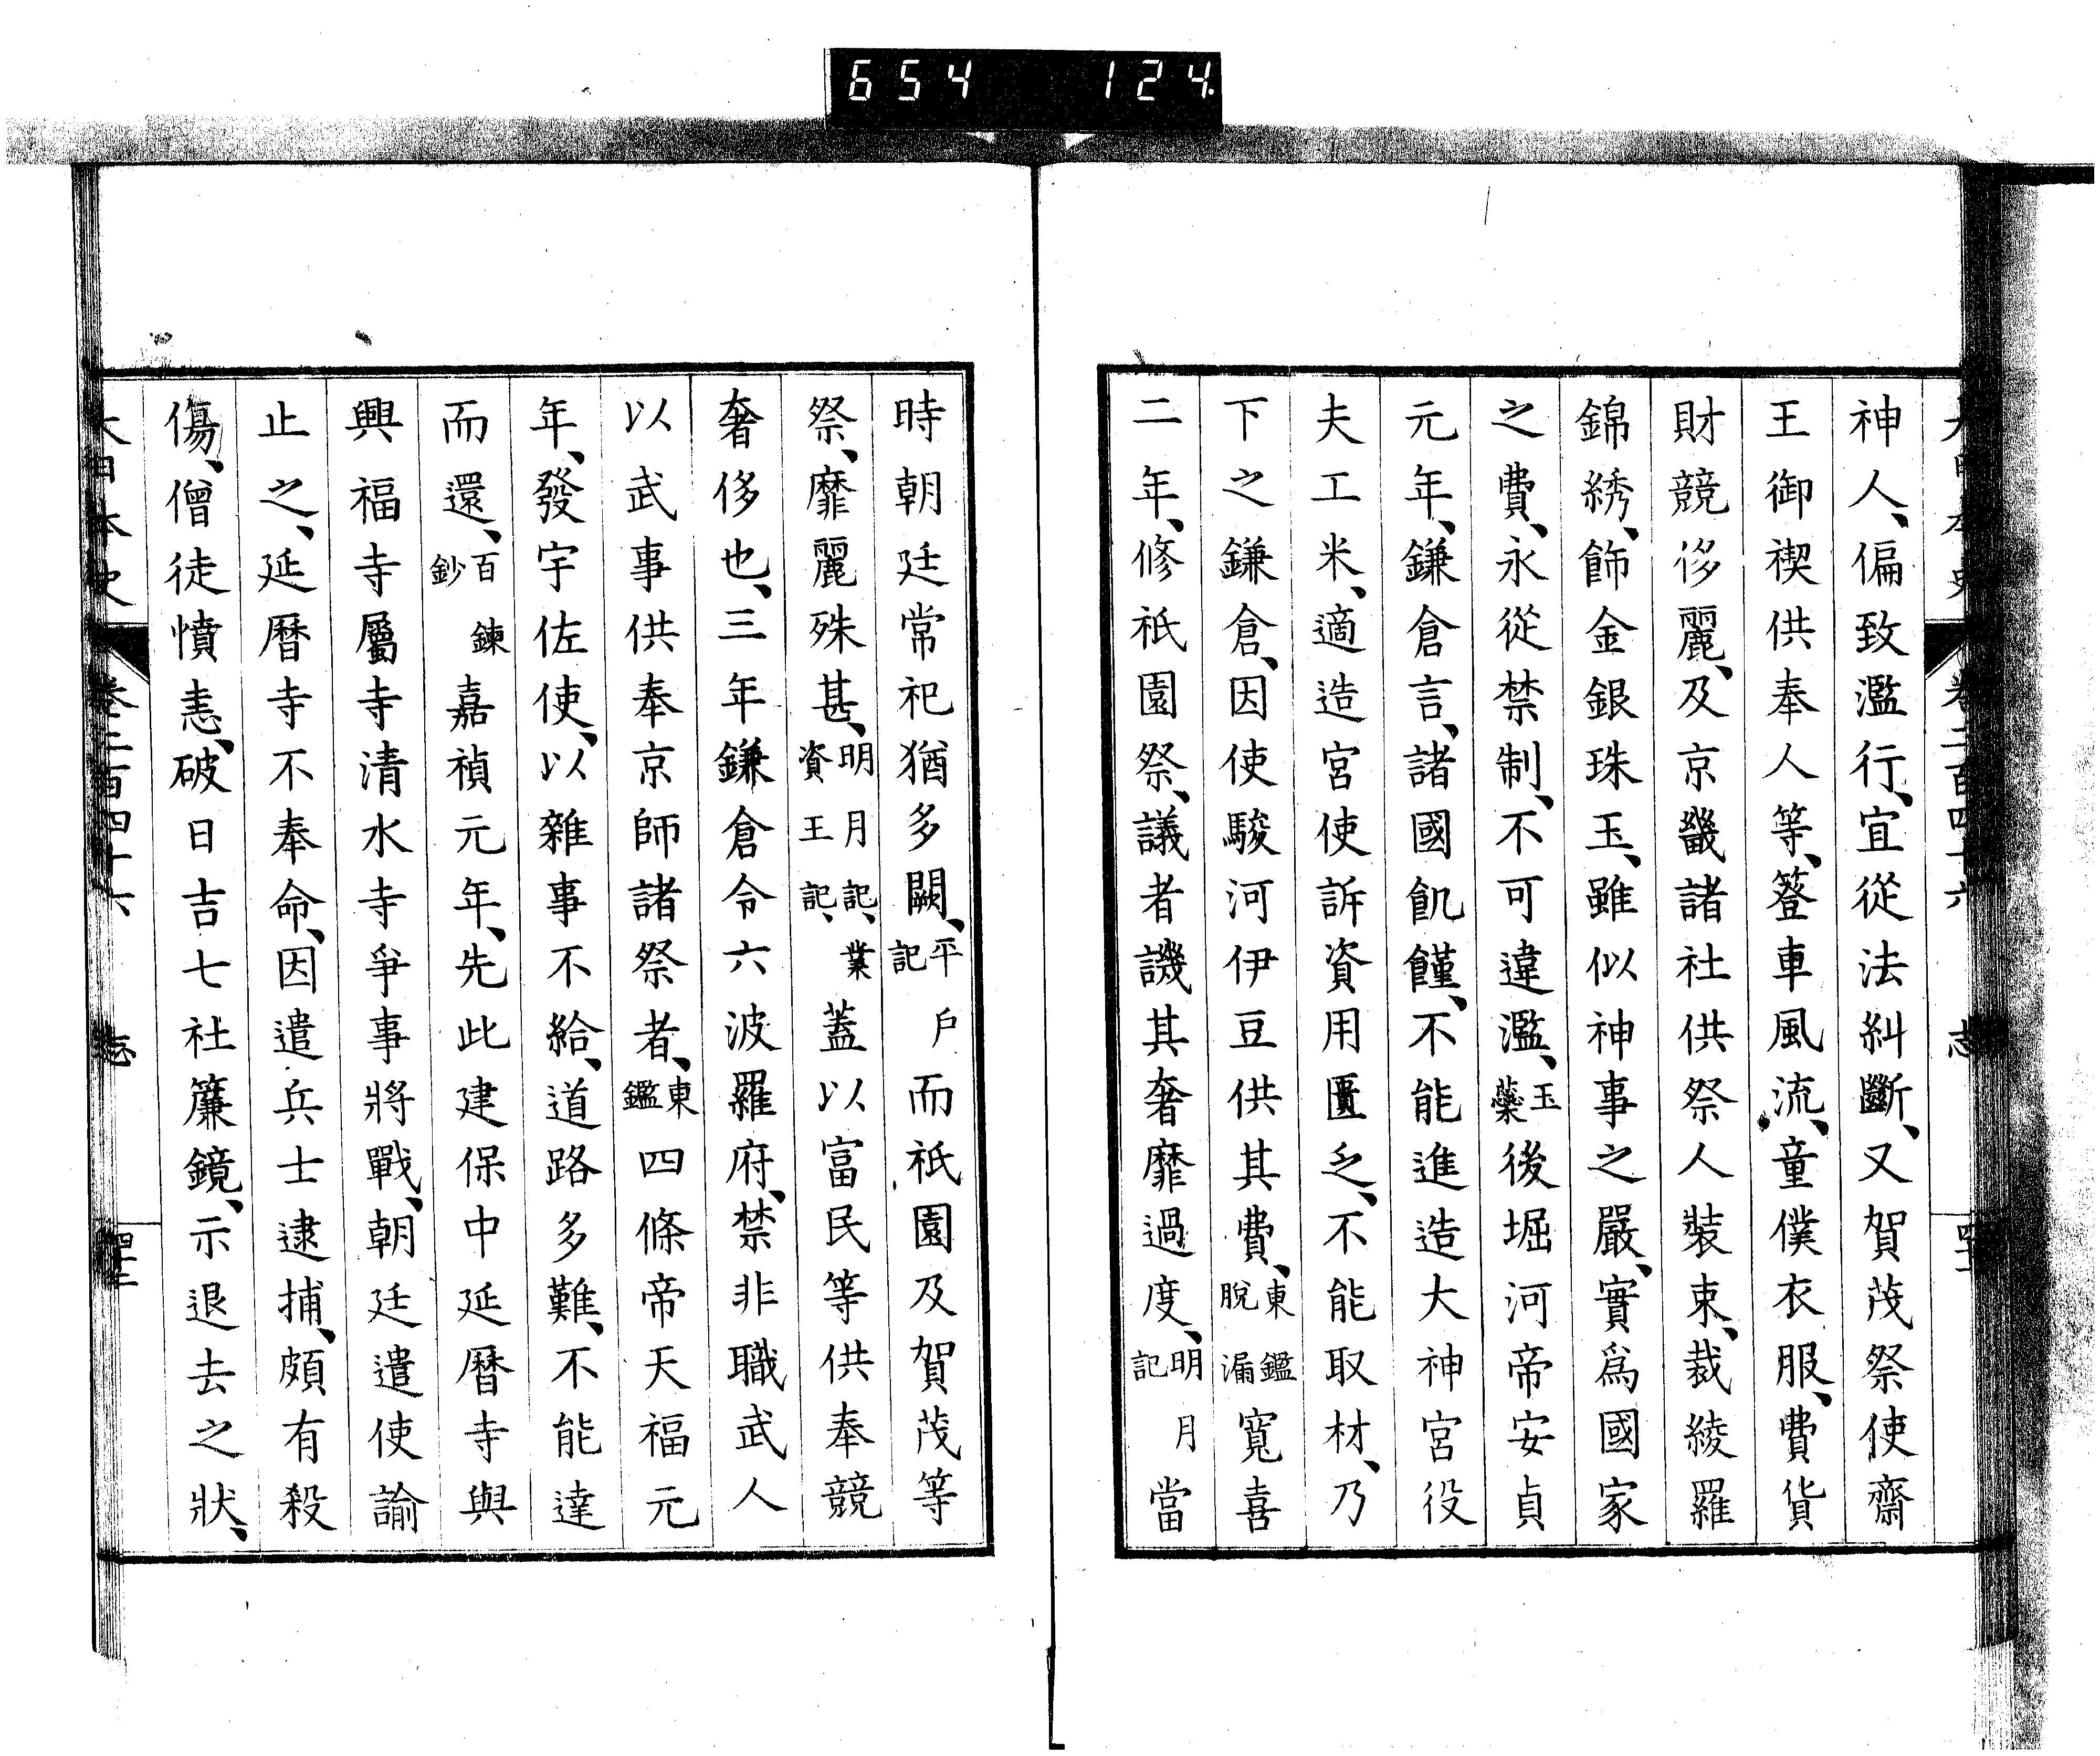 654 124
大日本史 卷二百四十六 志
神人、偏致濫行、宜從法糾斷、又賀茂祭使齋
王御禊供奉人等、簦車風流、童僕衣服、費貨
財競侈麗、及京畿諸社供祭人裝束、裁綾羅
錦綉、飾金銀珠玉、雖似神事之嚴、實爲國家
之費、永從禁制、不可違濫、玉蘂後堀河帝安貞
元年、鎌倉言、諸國飢饉、不能進造大神宮役
夫工米、適造宮使訴資用匱乏、不能取材、乃
下之鎌倉、因使駿河伊豆供其費、東鑑脫漏寬喜
二年、修祇園祭、議者譏其奢靡過度、明月記當
時朝廷常祀猶多闕、平戶記而祇園及賀茂等
祭、靡麗殊甚、明月記、業資王記、蓋以富民等供奉競
奢侈也、三年鎌倉令六波羅府、禁非職武人
以武事供奉京師諸祭者、東鑑四條帝天福元
年、發宇佐使、以雜事不給、道路多難、不能達
而還、百鍊鈔嘉禎元年、先此建保中延曆寺與
興福寺屬寺清水寺爭事將戰、朝廷遣使諭
止之、延曆寺不奉命、因遣兵士逮捕、頗有殺
傷、僧徒憤恚、破日吉七社簾鏡、示退去之狀、
大日本史 卷二百四十六 志